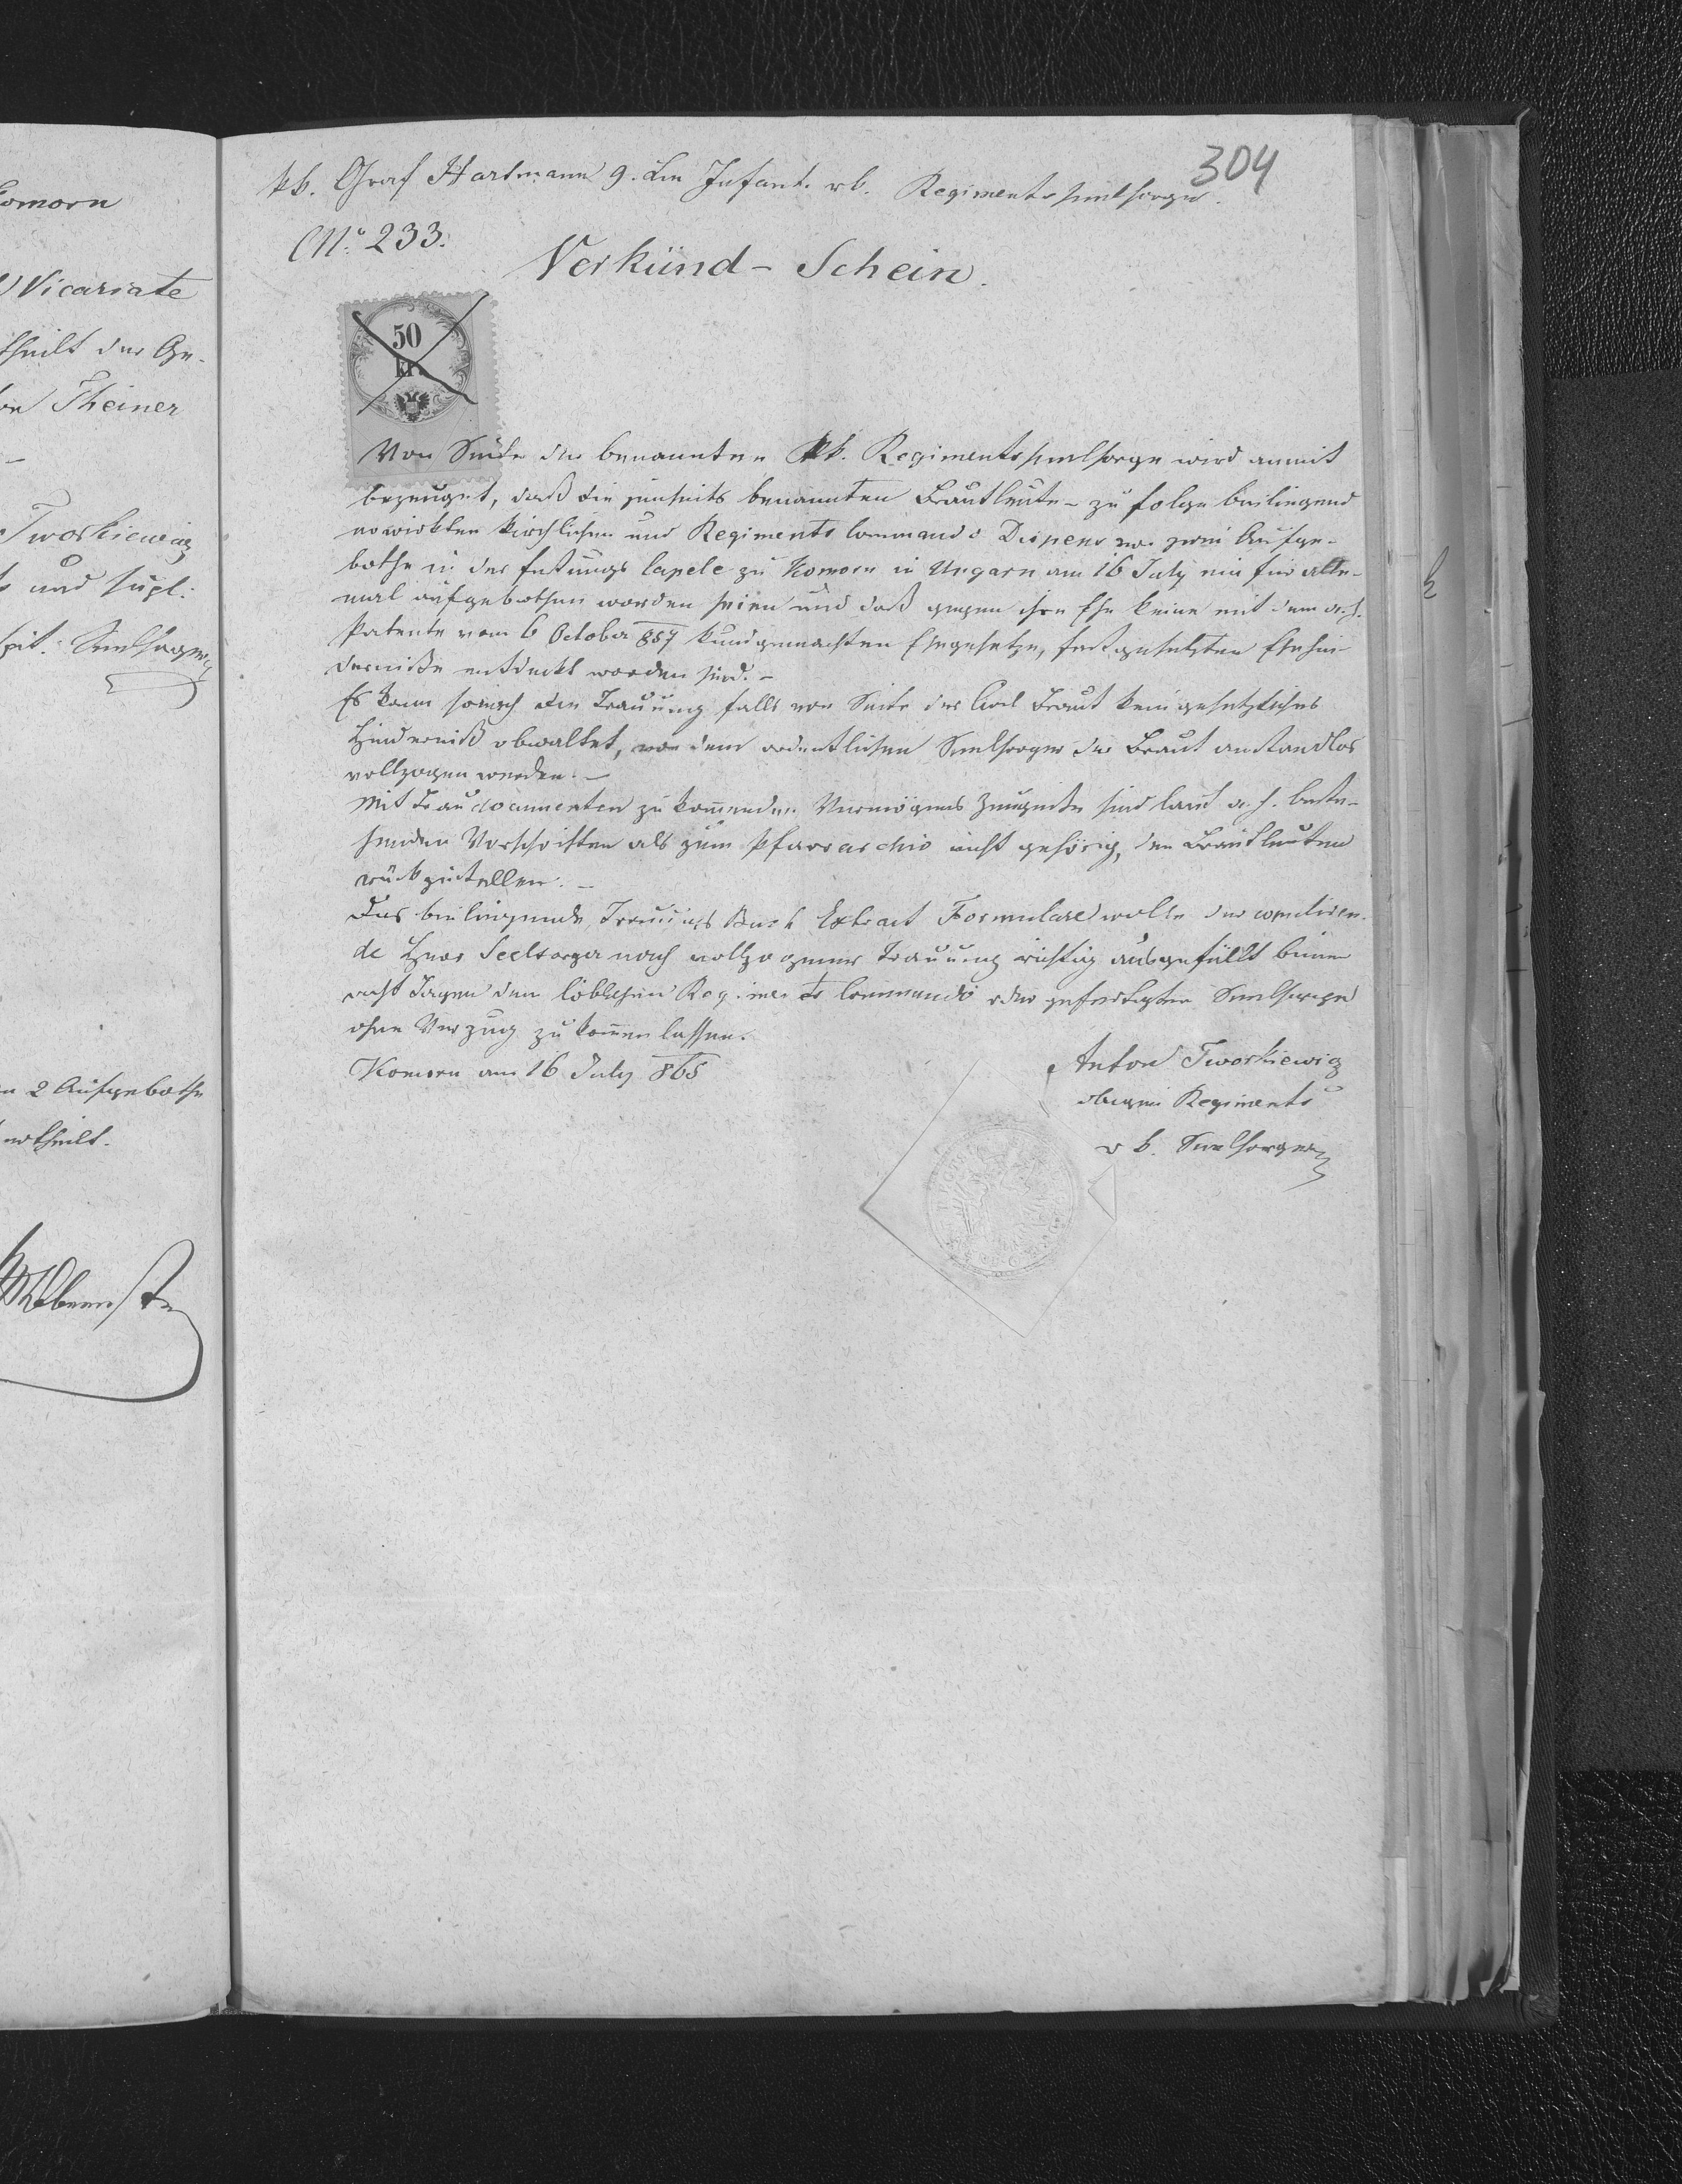 304
kk. Graf Hartmann 9. Lin Infant. rk. Regimentsseelsorge.
No. 233.
Verkünd-Schein.
50
kr.
Von Seite der benannten kk. Regimentsseelsorge wird anmit
bezeuget, daß die jenseits benannten Brautleute - zu folge beiliegend
erwirkten kirchlichen und Regiments Commando Dispens von zwei Aufge-
bothe in der Festungs Capele zu Komorn in Ungarn am 16 July ein für alle-
mal aufgebothen worden seien und daß gegen ihre Ehe keine mit dem a.h.
Patente vom 6 October 857 kundgemachten Ehegesetze, festgesetzten Ehehin-
derniße entdeckt worden sind. -
Es kann sonach die Trauung falls von Seite der Civil Braut kein gesetzliches
Hinderniß obwaltet, von dem ordentlichen Seelsorger der Braut anstandlos
vollzogen werden. -
Mit Traudocumenten zukommenden Vermögens Zeugniße sind laut a. h. beste-
henden Vorschriften als zum Pfarrarchiv nicht gehörig, den Brautleuten
rückzustellen. -
Das beiliegende Trauungs Buch Extract Formulare wolle der copuliren-
de Herr Seelsorger nach vollzogener Trauung richtig ausgefüllt binnen
acht Tagen dem löblichen Regiments Commando oder gefertigten Seelsorge
ohne Verzug zukommen lassen.
Komorn am 16 July 865
Anton Tworkiewicz
obigen Regiments
Seelsorger
Komorn
Vicariate
theilt der Ge-
Theiner
Tworkiewicz
und supl.
Seelsorger
2 Aufgebothe
ertheilt.